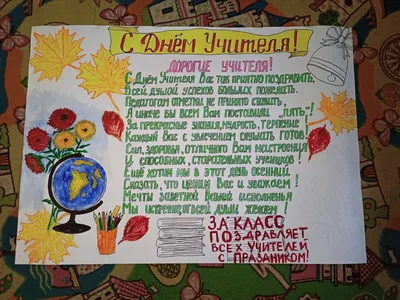 С Днём Учителя!
ДОРОГИЕ УЧИТЕЛЯ!
С Днём Учителя Вас так приятно поздравить,
Всей душой успехов больших пожелать.
Педагогам отметки не принято ставить,
А иначе бы всем Вам поставили „пять"!
За прекрасные знания, мудрость, терпение
Каждый Вас с увлечением слушать готов!
Сил, здоровья, отличного Вам настроения
И способных, старательных учеников!
Ещё хотим мы в этот день осенний
Сказать, что ценим Вас и уважаем!
Мечты заветной Вашей исполненья
Мы искренне, от всей души желаем!
3А КЛАСС
ПОЗДРАВЛЯЕТ
ВСЕХ УЧИТЕЛЕЙ
С ПРАЗДНИКОМ!